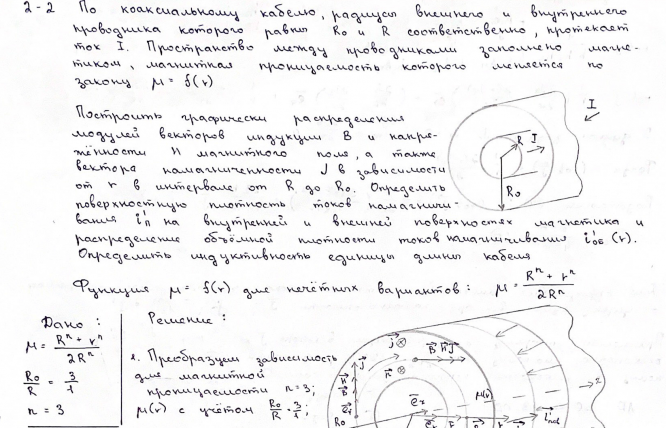 2-2 По коаксиальному кабелю, радиусы внешнего и внутреннего
проводника которого равны R₀ и R соответственно, протекает
ток I. Пространство между проводниками заполнено магне-
тиком, магнитная проницаемость которого меняется по
закону μ = f(r)
Построить графически распределения
модулей векторов индукции B и напря-
жённости H магнитного поля, а также
вектора намагниченности J в зависимости
от r в интервале от R до R₀. Определить
поверхностную плотность токов намагничи-
вания i'п на внутренней и внешней поверхностях магнетика и
распределение объёмной плотности токов намагничивания i'об (r).
Определить индуктивность единицы длины кабеля
R I
R₀
I
Функция μ = f(r) для нечётных вариантов: μ = (Rⁿ + rⁿ) / 2Rⁿ
Дано:
μ = (Rⁿ + rⁿ) / 2Rⁿ
R₀/R = 3/1
n = 3
Решение:
1. Преобразуем зависимость
для магнитной
проницаемости n=3;
μ(r) с учётом R₀/R = 3/1;
j
B H J
n
H
B
R₀
μ(r)